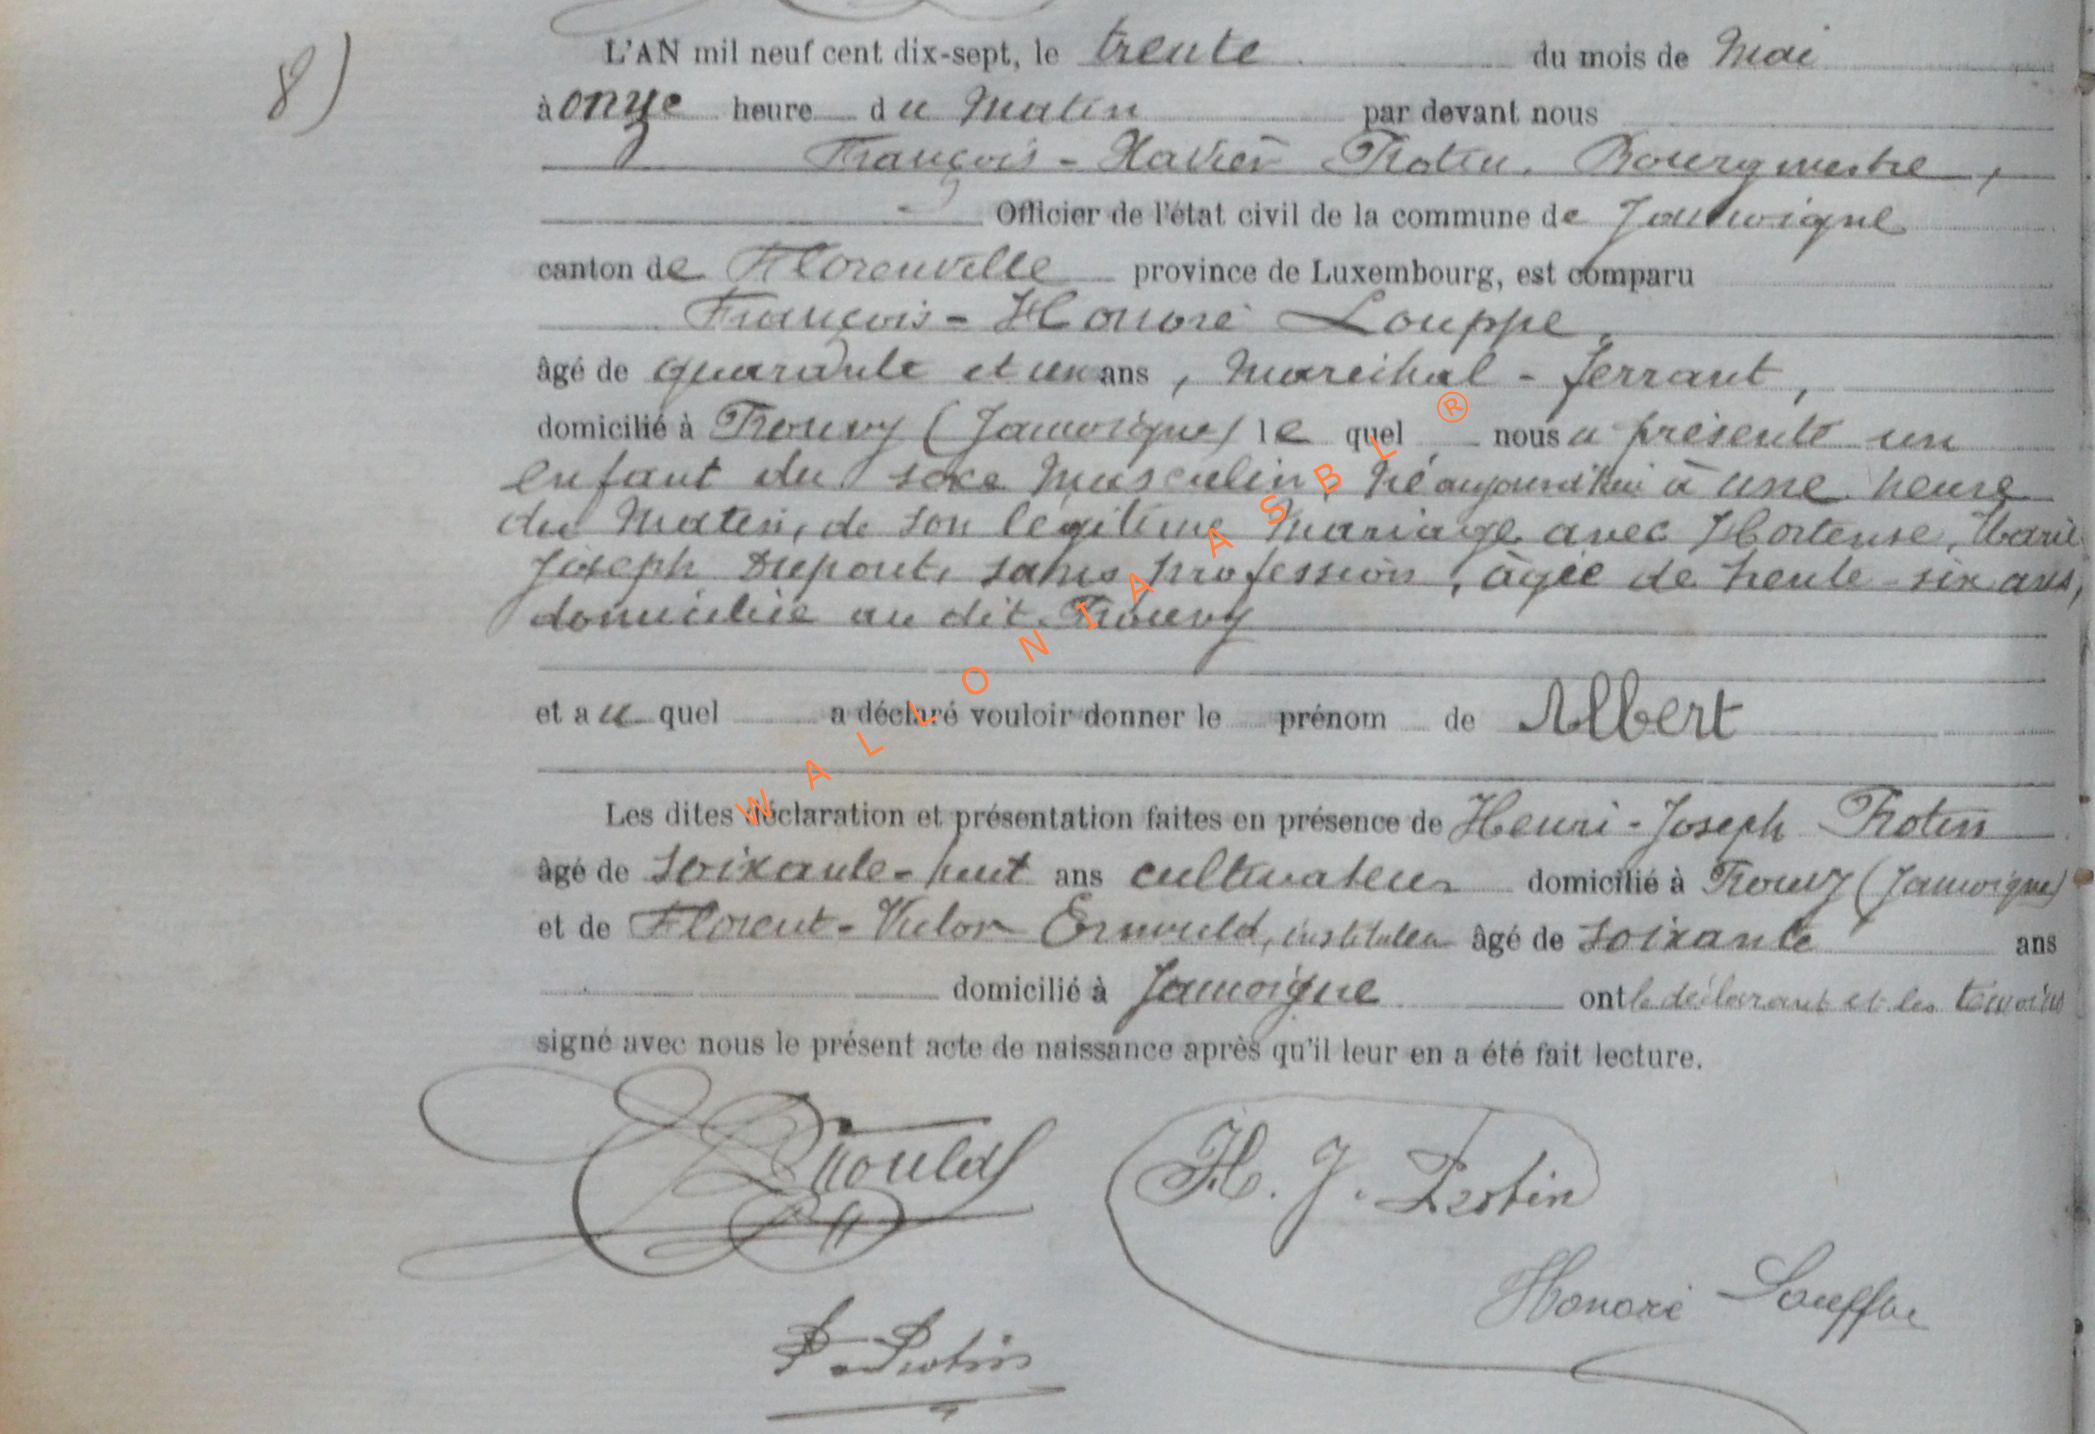 8)
L'AN mil neuf cent dix-sept, le trente du mois de Mai
à onze heure du Matin par devant nous
François-Xavier Protin, Bourgmestre,
Officier de l'état civil de la commune de Jamoigne
canton de Florenville province de Luxembourg, est comparu
François-Honoré Louppe,
âgé de quarante et un ans, Maréchal-ferrant,
domicilié à Prouvy (Jamoigne) le quel nous a présenté un
enfant du sexe Masculin, né aujourd'hui à une heure
du Matin, de son légitime Mariage avec Hortense, Marie
Joseph Dupont, sans profession, âgée de trente-six ans,
domiciliée au dit Prouvy
et au quel a déclaré vouloir donner le prénom de Albert
Les dites déclaration et présentation faites en présence de Henri-Joseph Protin
âgé de soixante-huit ans cultivateur domicilié à Prouvy (Jamoigne)
et de Florent-Victor Ernould, instituteur âgé de soixante ans
domicilié à Jamoigne ont le déclarant et les témoins
signé avec nous le présent acte de naissance après qu'il leur en a été fait lecture.
Ernould
H. J. Protin
Honoré Louppe
Protin
WALLONIA ASBL ®